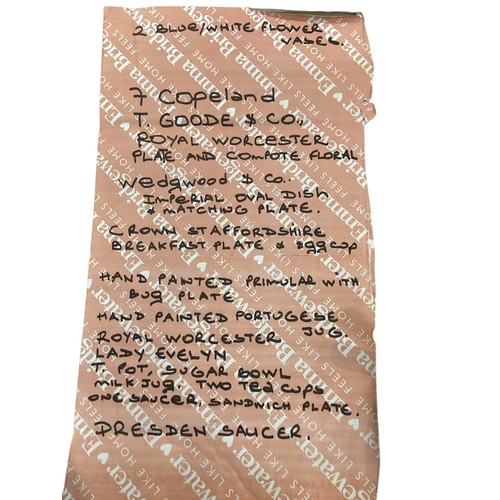 2 BLUE/WHITE FLOWER
VASES.
7 Copeland
T. GOODE & CO.,
ROYAL WORCESTER
PLATE AND COMPOTE FLORAL
Wedgwood & Co.
IMPERIAL OVAL DISH
& MATCHING PLATE.
CROWN STAFFORDSHIRE
BREAKFAST PLATE & EGG CUP
HAND PAINTED PRIMULAR WITH
BUG PLATE
HAND PAINTED PORTUGESE
JUG.
ROYAL WORCESTER
LADY EVELYN
T. POT, SUGAR BOWL
MILK JUG, TWO TEA CUPS
ONE SAUCER, SANDWICH PLATE.
DRESDEN SAUCER.
Emma Bridgewater
FEELS LIKE HOME